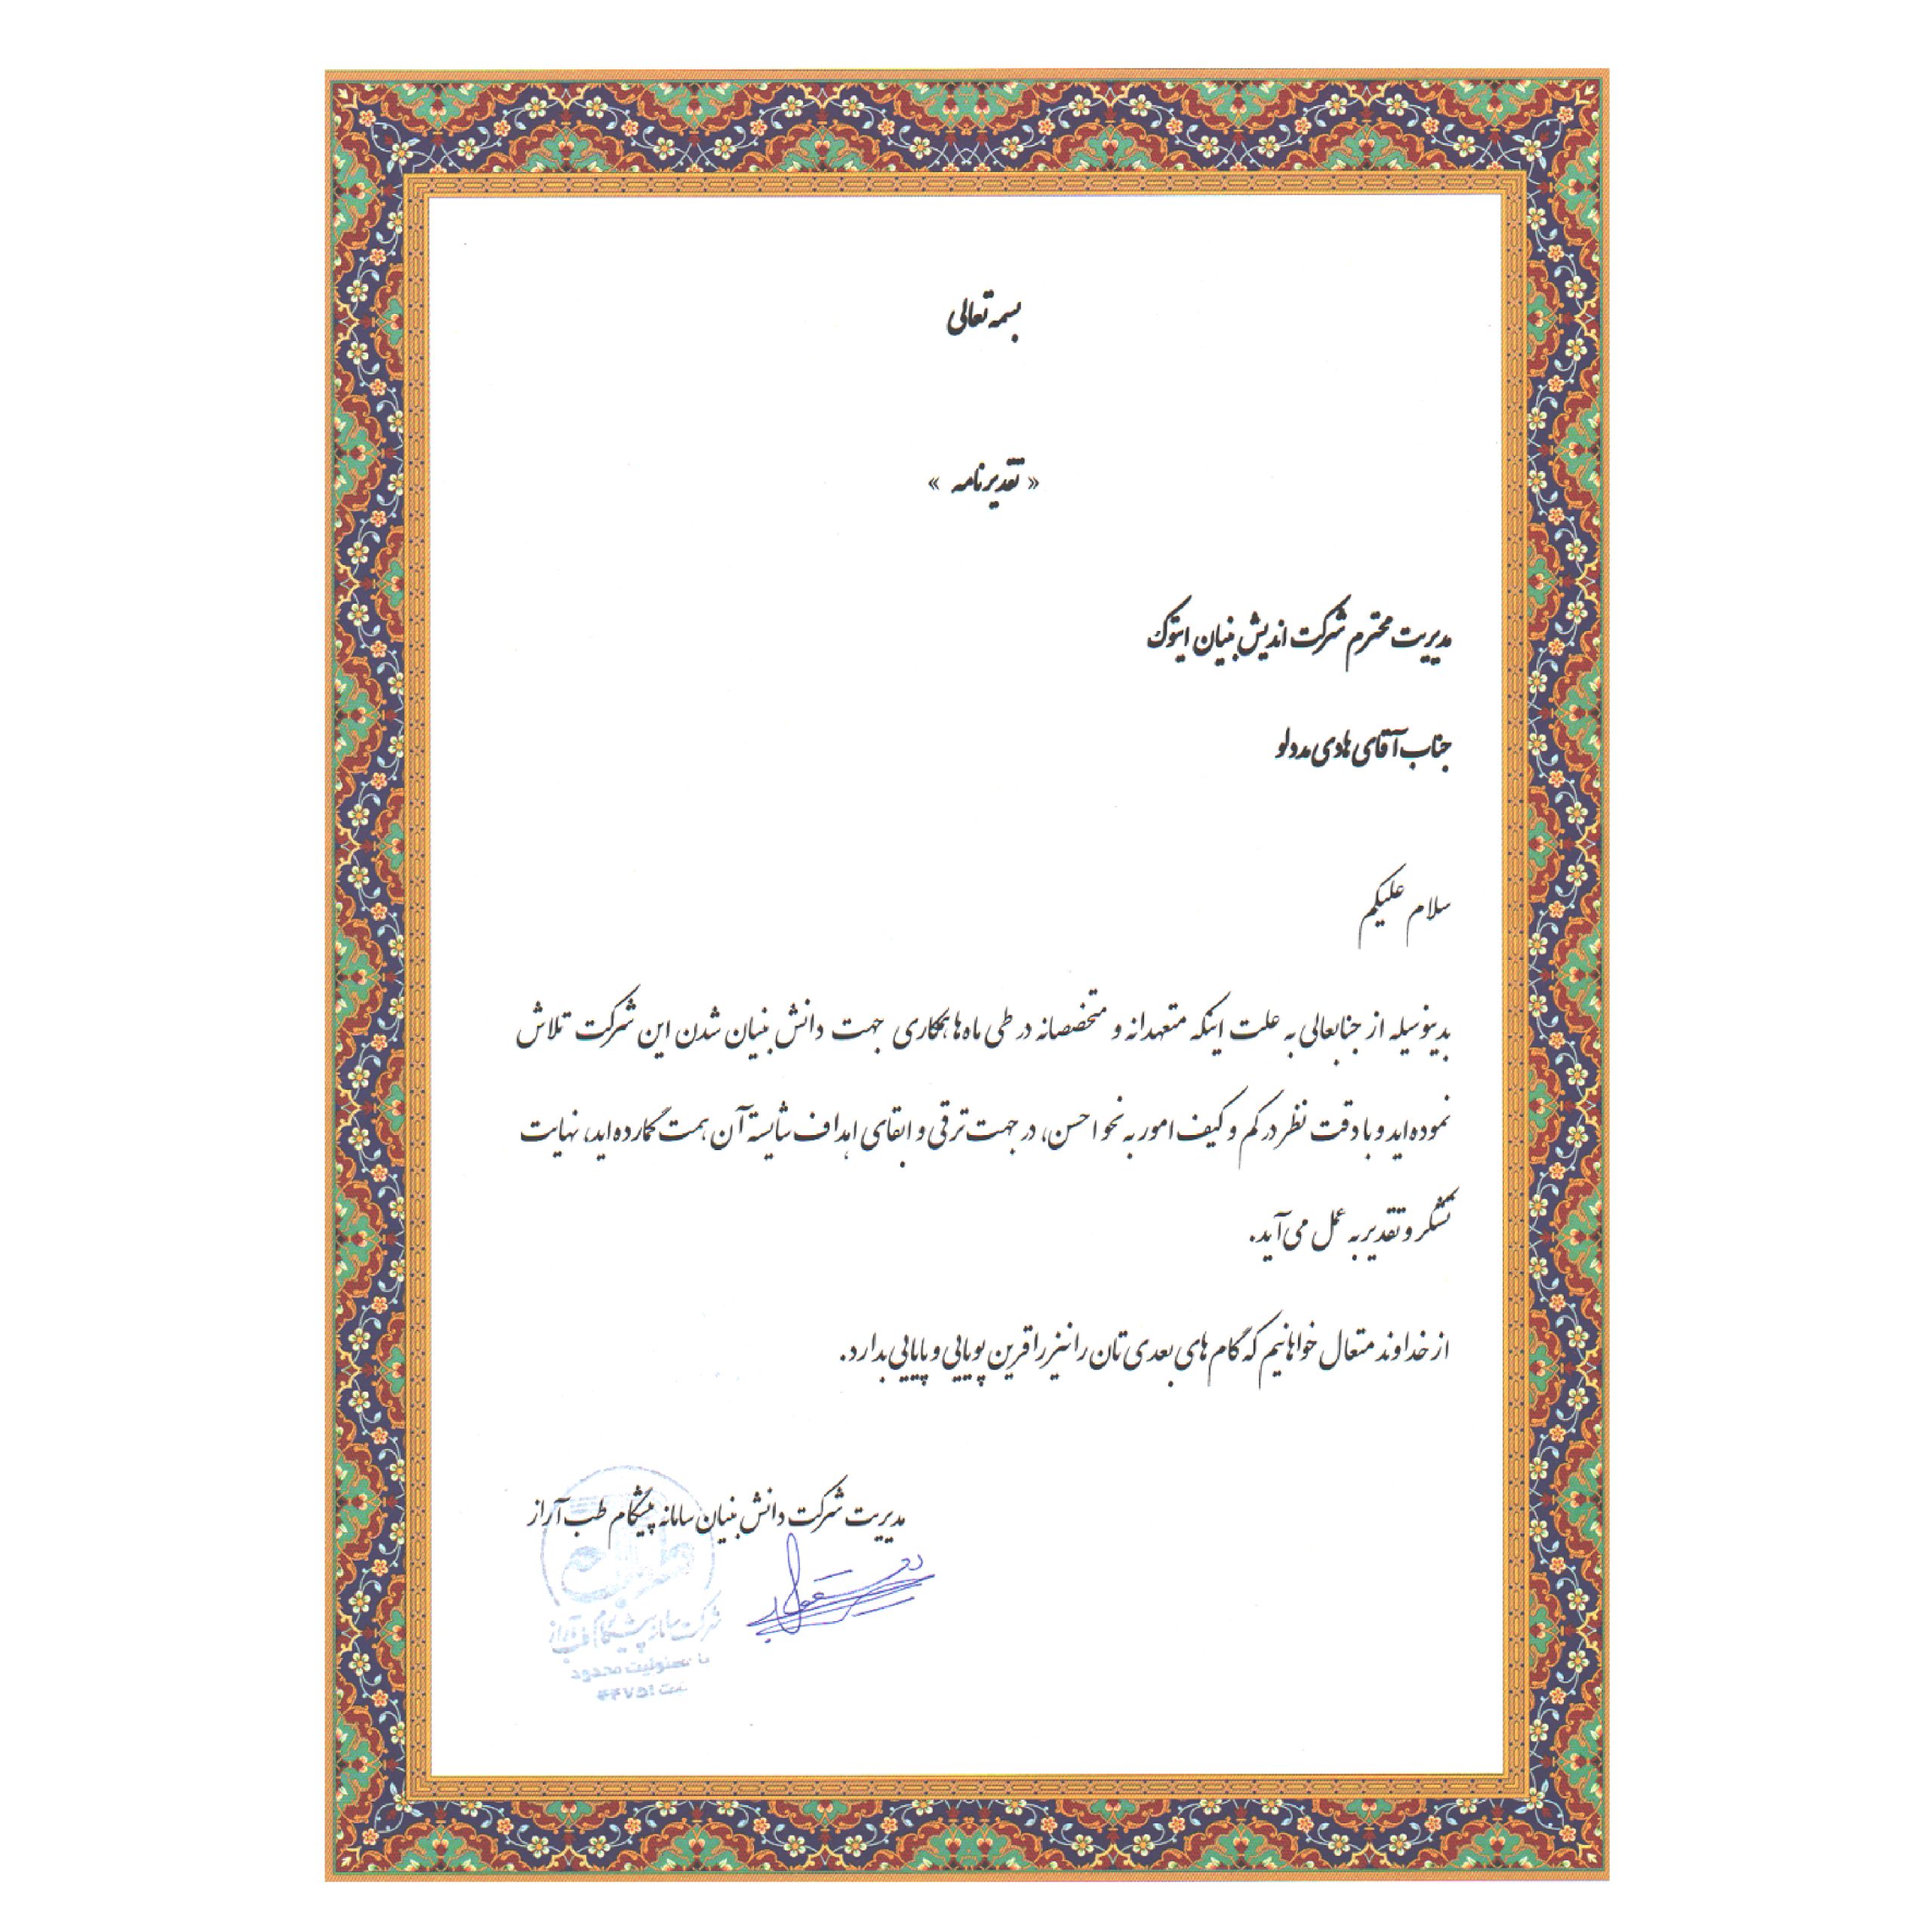 بسمه تعالی
« تقدیرنامه »
مدیریت محترم شرکت اندیش بنیان اینوتک
جناب آقای هادی مددلو
سلام علیکم
بدینوسیله از جنابعالی به علت اینکه متعهدانه و متخصصانه در طی ماه‌ها همکاری جهت دانش بنیان شدن این شرکت تلاش
نموده‌اید و با دقت نظر در کم و کیف امور به نحو احسن، در جهت ترقی و ابقای اهداف شایسته آن همت گمارده‌اید، نهایت
تشکر و تقدیر به عمل می‌آید.
از خداوند متعال خواهانیم که گام های بعدی تان را نیز را قرین پویایی و پایایی بدارد.
مدیریت شرکت دانش بنیان سامانه پیشگام طب آراز
شرکت سامانه پیشگام طب آراز
با مسئولیت محدود